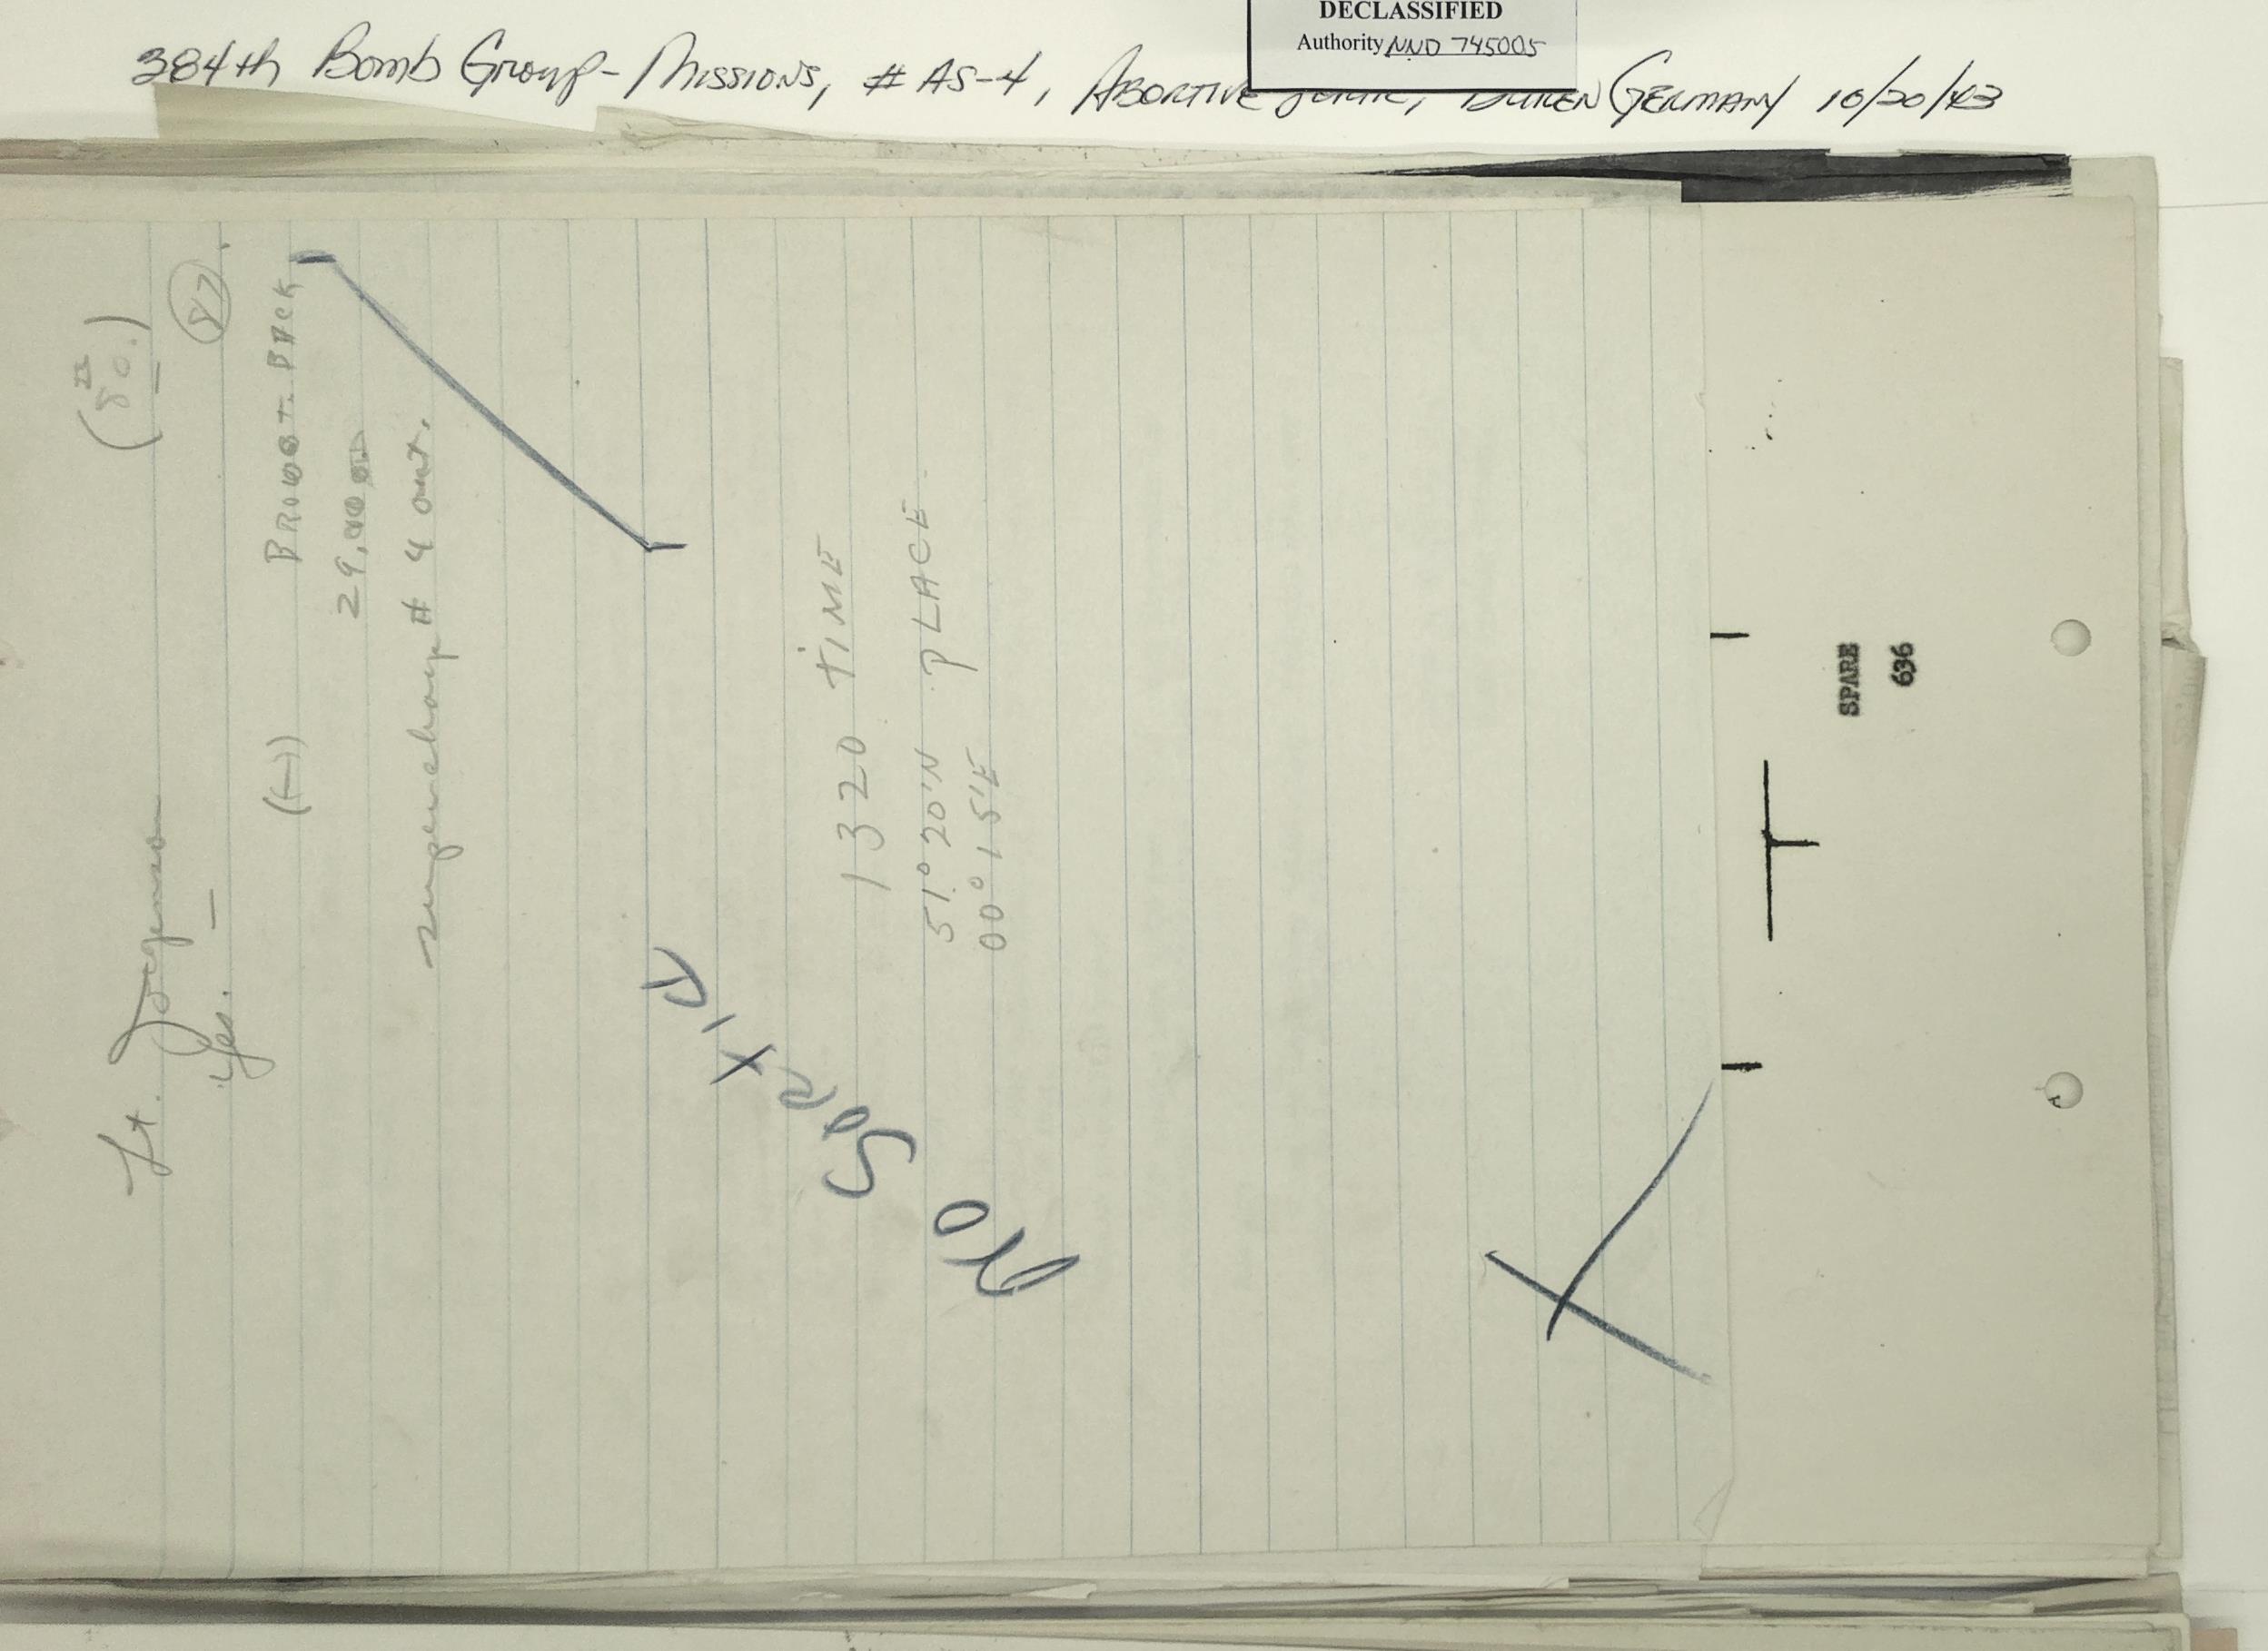 DECLASSIFIED
Authority NND 745005
384th Bomb Group - Missions, # AS-4, Abortive Germany 10/20/43
Lt. Jorgenson
Yes.
87
(-) BROUGHT BACK
29,000
supercharger # 4 out.
1320 TIME
51° 20'N PLACE
00° 15'E
NO SORTIE
SPARE
636